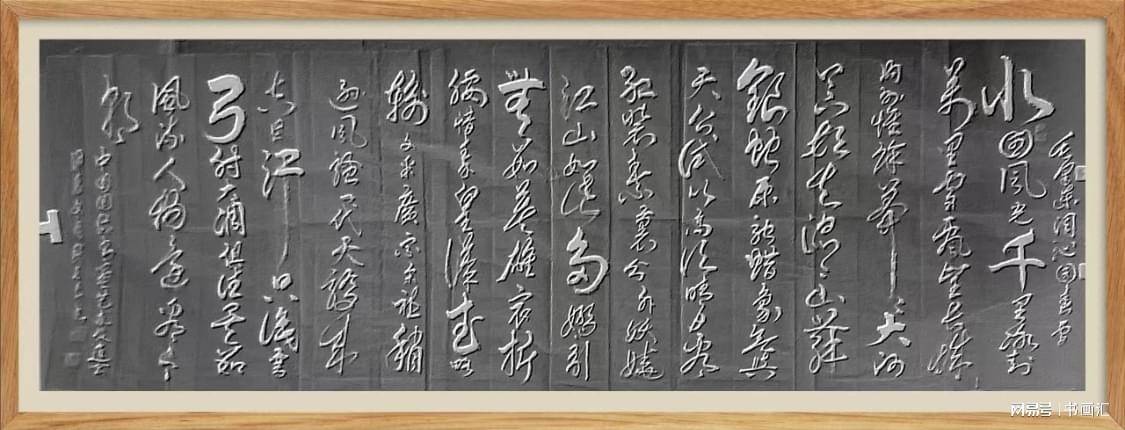 毛泽东词沁园春雪
北国风光千里冰封
萬里雪飘望长城
内外惟余莽莽大河
上下顿失滔滔山舞
銀蛇原驰蜡象欲与
天公试比高须晴日看
红装素裹分外妖娆
江山如此多娇引
無数英雄竞折
腰惜秦皇漢武略
输文采唐宗宋祖稍
逊风骚一代天骄成
吉思汗只识弯
弓射大雕俱往矣数
風流人物还看今
朝
中国国际书画艺
网易号 | 书画汇